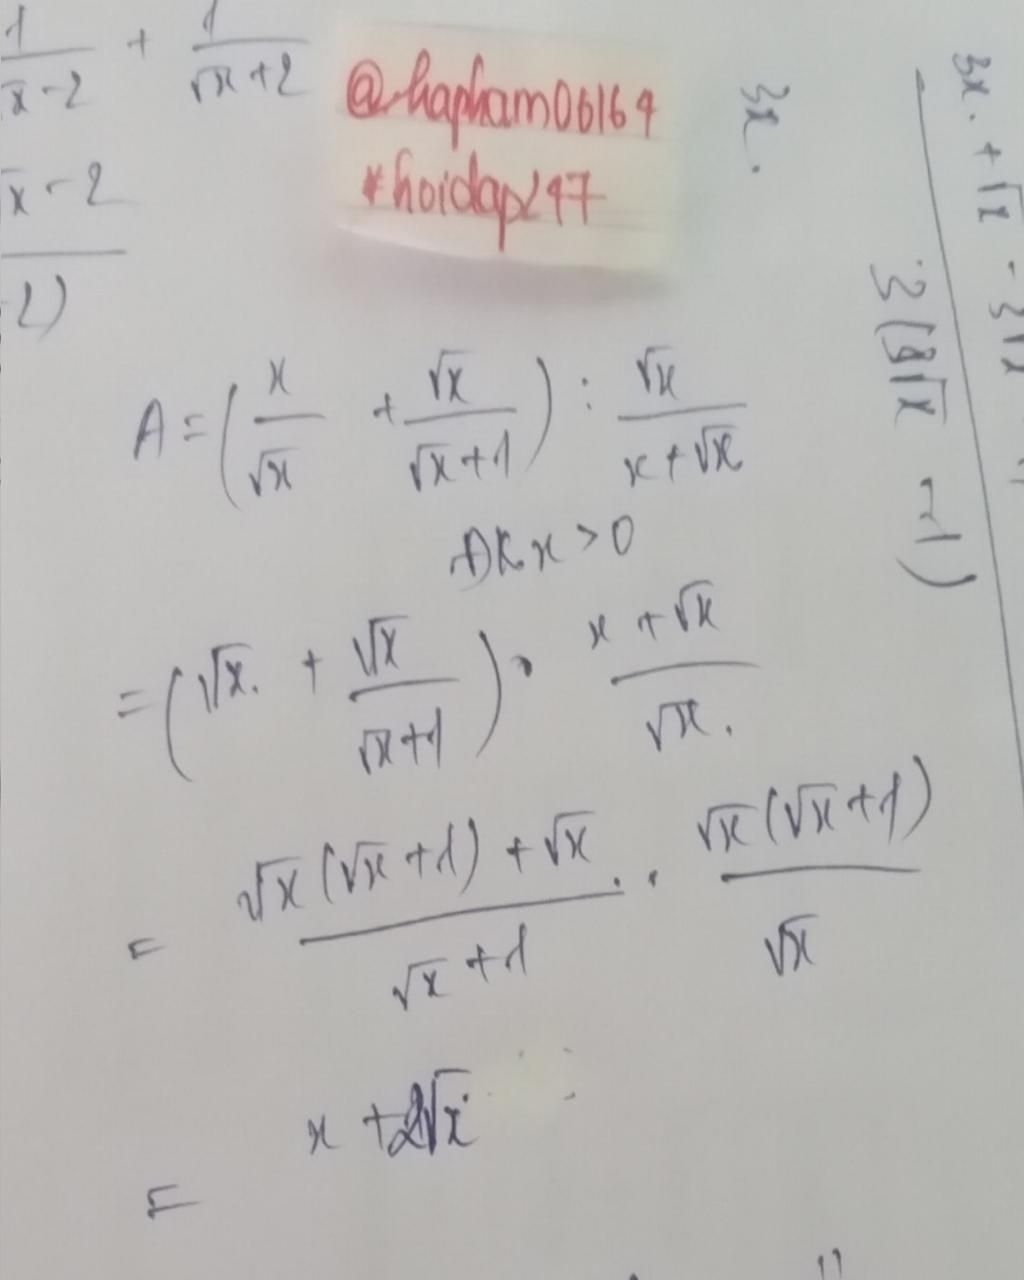 1/(√x-2) + 1/(√x+2)
@hapham06164
#hoidap247
x-2
2)
3x.
3x. + √x - 3√x
3(3√x -1)
A = (x/√x + √x/(√x+1)) : √x/(x+√x)
ĐK x > 0
= (√x. + √x/(√x+1)) . (x+√x)/√x.
= (√x(√x+1)+√x)/(√x+1) . √x(√x+1)/√x
= x + 2√x